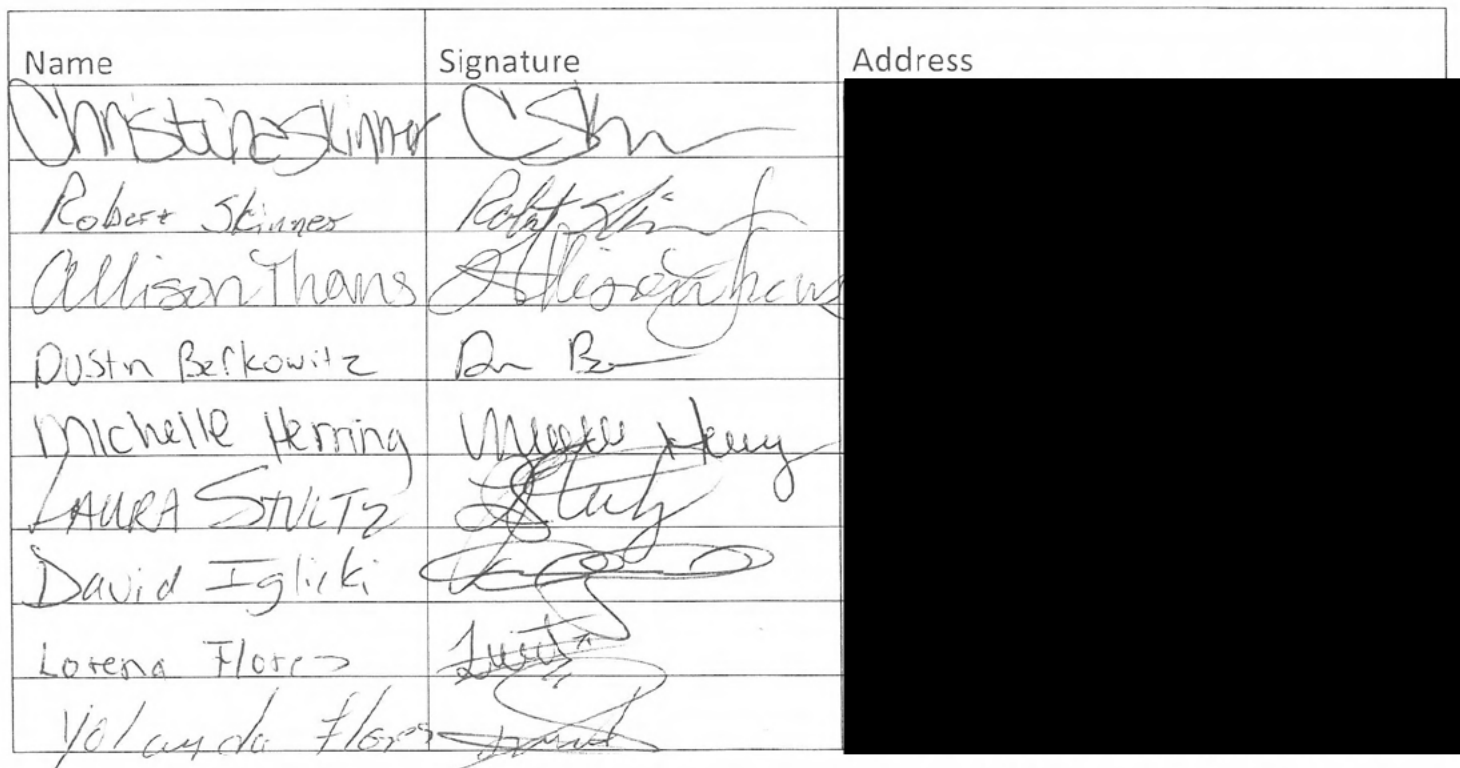 Name Signature Address
Christina Skinner
Robert Skinner Robert Skinner
Allison Thans Allison Thans
Dustin Berkowitz
Michelle Herring
LAURA STULTZ
David Iglicki
Lorena Flores
Yolanda Flores